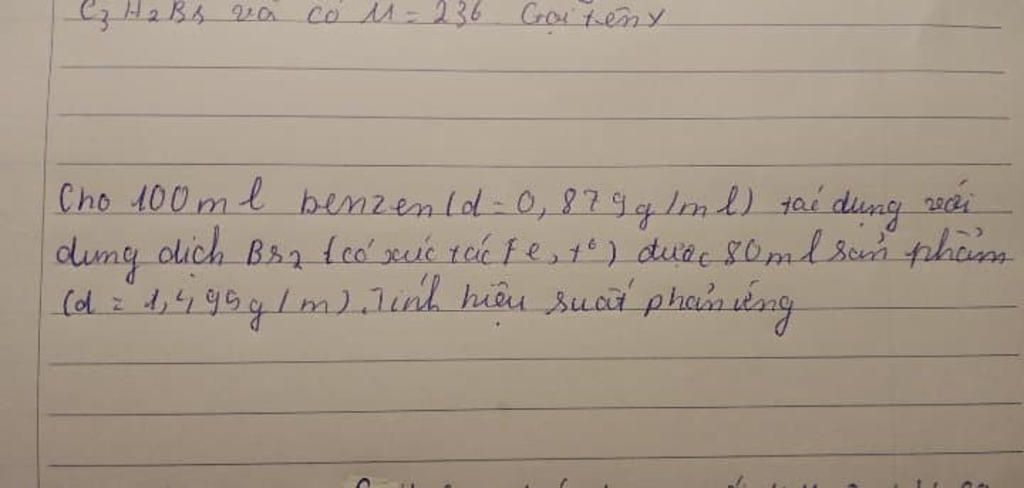 C3H2Br và có M = 236 Gọi tên Y
Cho 100ml benzen (d = 0,879g/ml) tác dụng với
dung dịch Br2 (có xúc tác Fe, t°) được 80ml sản phẩm
(d = 1,495g/m). Tính hiệu suất phản ứng